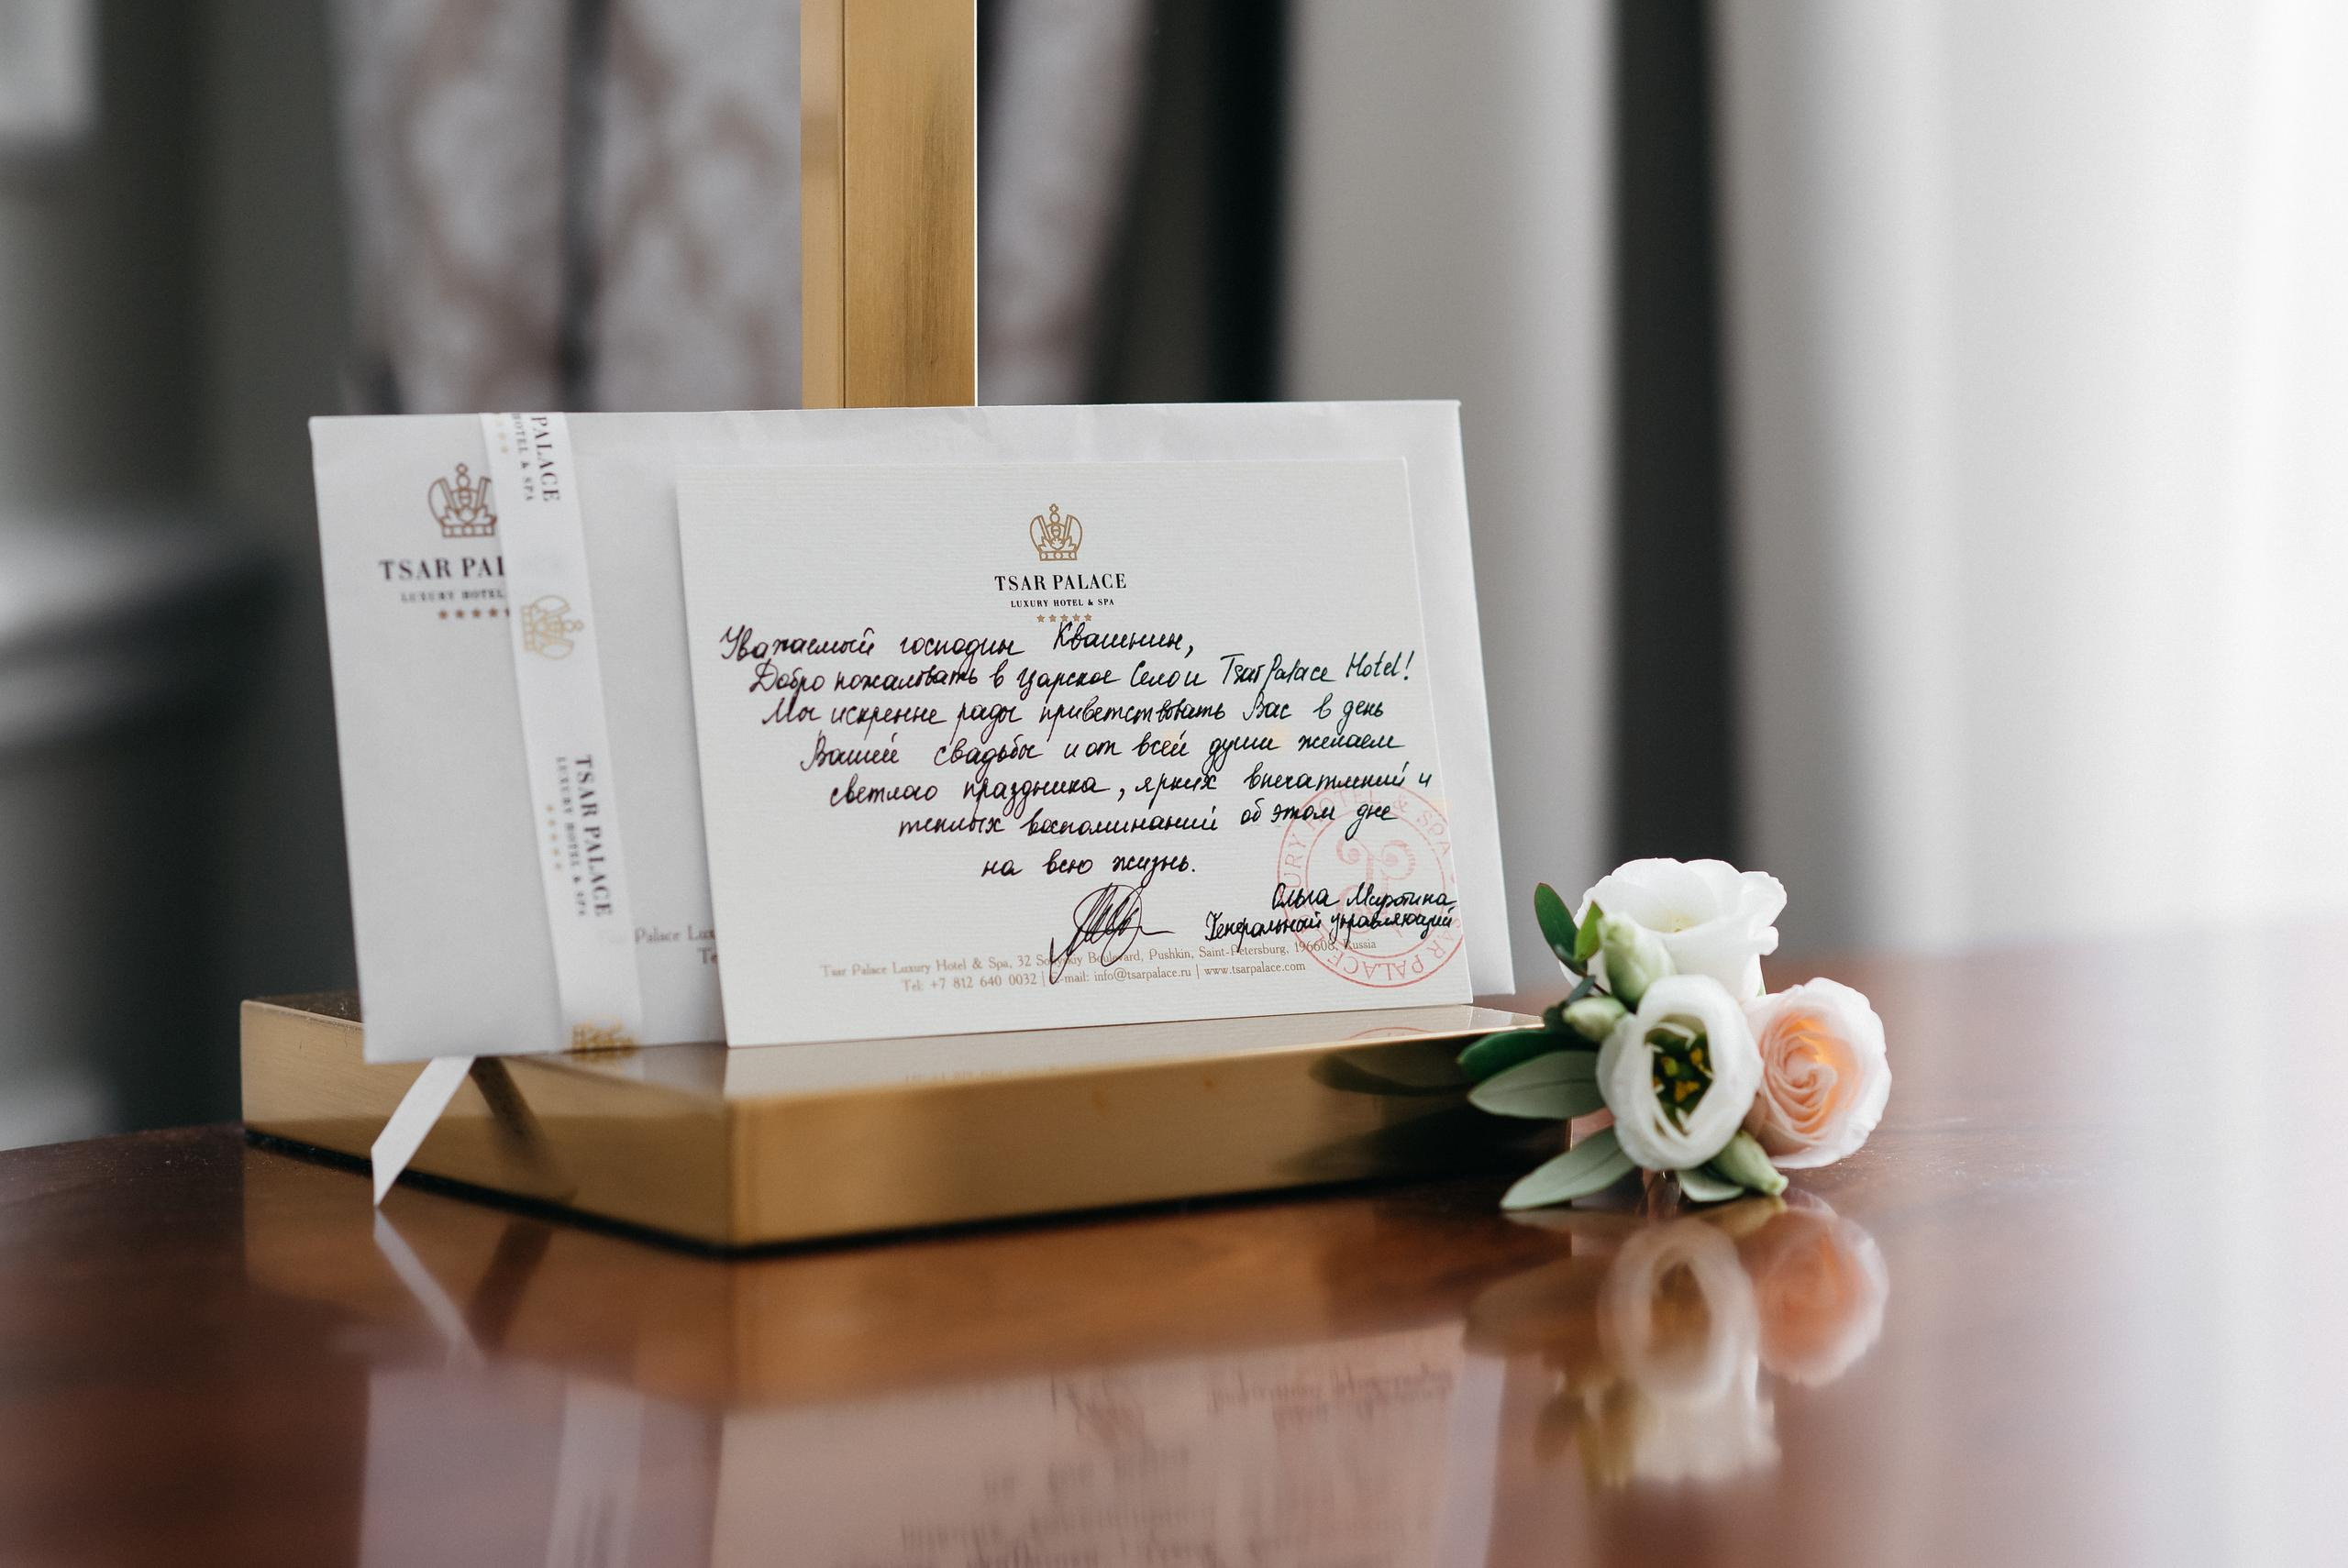 PALACE
HOTEL & SPA
TSAR PAL
LUXURY HOTEL
TSAR PALACE
LUXURY HOTEL & SPA
Palace Lux
Te
TSAR PALACE
LUXURY HOTEL & SPA
Уважаемый господин Квашнин,
Добро пожаловать в Царское Село и Tsar Palace Hotel!
Мы искренне рады приветствовать Вас в день
Вашей свадьбы и от всей души желаем
светлого праздника, ярких впечатлений и
теплых воспоминаний об этом дне
на всю жизнь.
Ольга
Генеральный управляющий
Tsar Palace Luxury Hotel & Spa, 32 Boulevard, Pushkin, Saint-Petersburg, 196608, Russia
Tel: +7 812 640 0032 | e-mail: info@tsarpalace.ru | www.tsarpalace.com
LUXURY HOTEL & SPA
TSAR PALACE